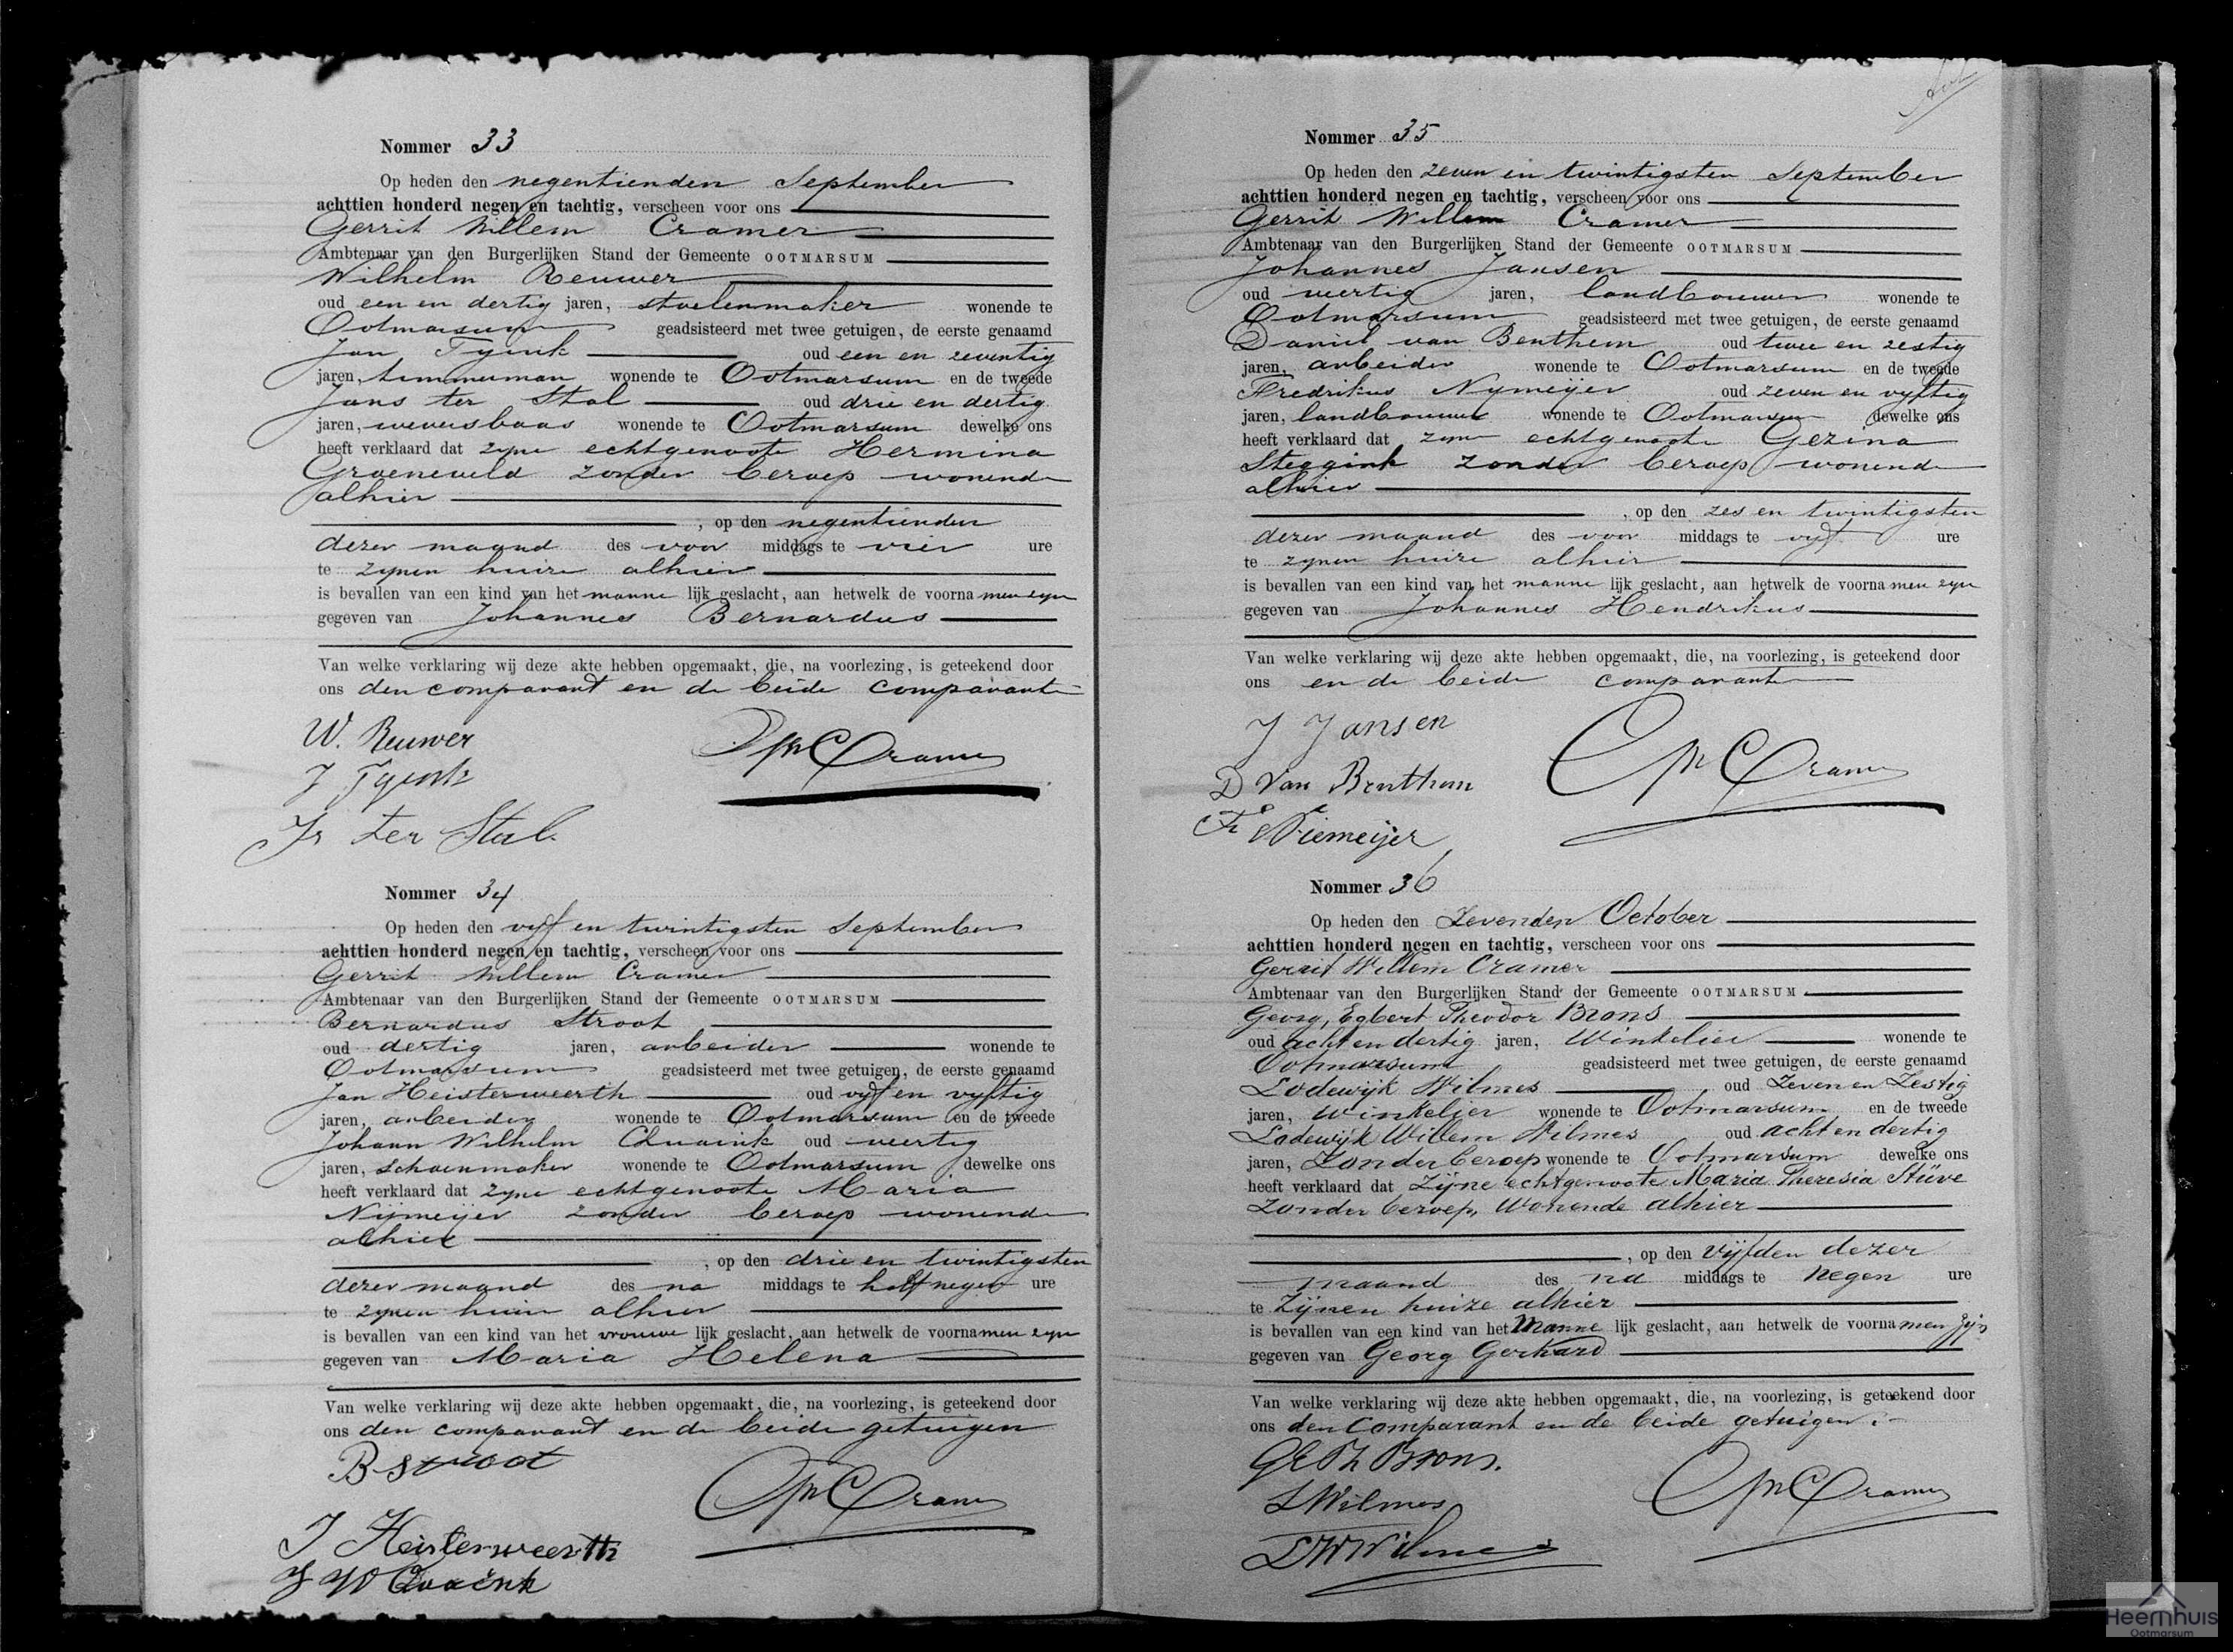 Nommer 33
Op heden den negentienden September
achttien honderd negen en tachtig, verscheen voor ons
Gerrit Willem Cramer
Ambtenaar van den Burgerlijken Stand der Gemeente OOTMARSUM
Wilhelm Reuwer
oud een en dertig jaren, stoelenmaker wonende te
Ootmarsum geadsisteerd met twee getuigen, de eerste genaamd
Jan Tyink oud een en zeventig
jaren, timmerman wonende te Ootmarsum en de tweede
Jans ter Stal oud drie en dertig
jaren, weversbaas wonende te Ootmarsum dewelke ons
heeft verklaard dat zyne echtgenoote Hermina
Groeneveld zonder beroep wonende
alhier
, op den negentienden
dezer maand des voor middags te vier ure
te zynen huize alhier
is bevallen van een kind van het manne lijk geslacht, aan hetwelk de voorna men zyn
gegeven van Johannes Bernardus
Van welke verklaring wij deze akte hebben opgemaakt, die, na voorlezing, is geteekend door
ons den comparant en de beide comparante
W. Reuwer
J Tyink
GW Cramer
Js ter Stal.
Nommer 34
Op heden den vyf en twintigsten September
achttien honderd negen en tachtig, verscheen voor ons
Gerrit Willem Cramer
Ambtenaar van den Burgerlijken Stand der Gemeente OOTMARSUM
Bernardus Stroot
oud dertig jaren, arbeider wonende te
Ootmarsum geadsisteerd met twee getuigen, de eerste genaamd
Jan Heisterweerth oud vyf en vyftig
jaren, arbeider wonende te Ootmarsum en de tweede
Johann Wilhelm Quaink oud veertig
jaren, schoenmaker wonende te Ootmarsum dewelke ons
heeft verklaard dat zyne echtgenoote Maria
Nijmeijer zonder beroep wonende
alhier
, op den drie en twintigsten
dezer maand des na middags te half negen ure
te zynen huize alhier
is bevallen van een kind van het vrouwe lijk geslacht, aan hetwelk de voorna men zyn
gegeven van Maria Helena
Van welke verklaring wij deze akte hebben opgemaakt, die, na voorlezing, is geteekend door
ons den comparant en de beide getuigen
B Stroot
GW Cramer
J Heisterweerth
J W Quaink
Nommer 35
Op heden den zeven en twintigsten September
achttien honderd negen en tachtig, verscheen voor ons
Gerrit Willem Cramer
Ambtenaar van den Burgerlijken Stand der Gemeente OOTMARSUM
Johannes Jansen
oud veertig jaren, landbouwer wonende te
Ootmarsum geadsisteerd met twee getuigen, de eerste genaamd
Daniel van Benthem oud twee en zestig
jaren, arbeider wonende te Ootmarsum en de tweede
Fredrikus Nymeijer oud zeven en vyftig
jaren, landbouwer wonende te Ootmarsum dewelke ons
heeft verklaard dat zyne echtgenoote Gezina
Steggink zonder beroep wonende
alhier
, op den zes en twintigsten
dezer maand des voor middags te vyf ure
te zynen huize alhier
is bevallen van een kind van het manne lijk geslacht, aan hetwelk de voorna men zyn
gegeven van Johannes Hendrikus
Van welke verklaring wij deze akte hebben opgemaakt, die, na voorlezing, is geteekend door
ons en de beide comparante
J Jansen
D Van Benthem
GW Cramer
Fr Niemeijer
Nommer 36
Op heden den Zevenden October
achttien honderd negen en tachtig, verscheen voor ons
Gerrit Willem Cramer
Ambtenaar van den Burgerlijken Stand der Gemeente OOTMARSUM
Georg, Egbert Theodor Brons
oud acht en dertig jaren, Winkelier wonende te
Ootmarsum geadsisteerd met twee getuigen, de eerste genaamd
Lodewijk Wilmes oud Zeven en Zestig
jaren, Winkelier wonende te Ootmarsum en de tweede
Lodewijk Willem Wilmes oud acht en dertig
jaren, Zonder beroep wonende te Ootmarsum dewelke ons
heeft verklaard dat Zijne echtgenoote Maria Theresia Stüve
Zonder beroep, Wonende alhier
, op den Vijfden dezer
maand des na middags te negen ure
te Zijnen huize alhier
is bevallen van een kind van het Manne lijk geslacht, aan hetwelk de voorna men zijn
gegeven van Georg Gerhard
Van welke verklaring wij deze akte hebben opgemaakt, die, na voorlezing, is geteekend door
ons den Comparant en de beide getuigen.
GE Th Brons.
GW Cramer
L Wilmes
L W Wilmes
Heemhuis
Ootmarsum